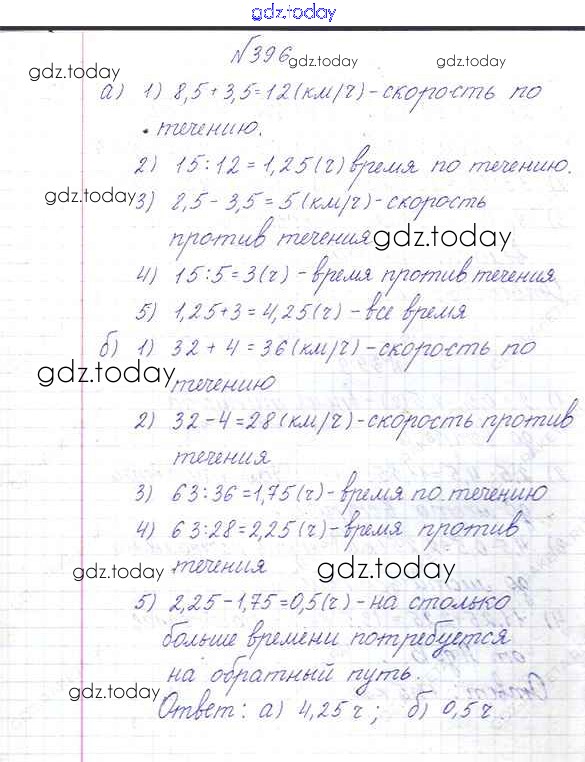 gdz.today
№396 gdz.today gdz.today
gdz.today
а) 1) 8,5 + 3,5 = 12 (км/ч) - скорость по
течению.
2) 15 : 12 = 1,25 (ч) время по течению.
gdz.today
3) 8,5 - 3,5 = 5 (км/ч) - скорость
против течения gdz.today
4) 15 : 5 = 3 (ч) - время против течения
5) 1,25 + 3 = 4,25 (ч) - все время
б) 1) 32 + 4 = 36 (км/ч) - скорость по
gdz.today
течению
2) 32 - 4 = 28 (км/ч) - скорость против
течения
3) 63 : 36 = 1,75 (ч) - время по течению
4) 63 : 28 = 2,25 (ч) - время против
gdz.today течения gdz.today
5) 2,25 - 1,75 = 0,5 (ч) - на столько
больше времени потребуется
на обратный путь.
gdz.today
Ответ: а) 4,25 ч; б) 0,5 ч